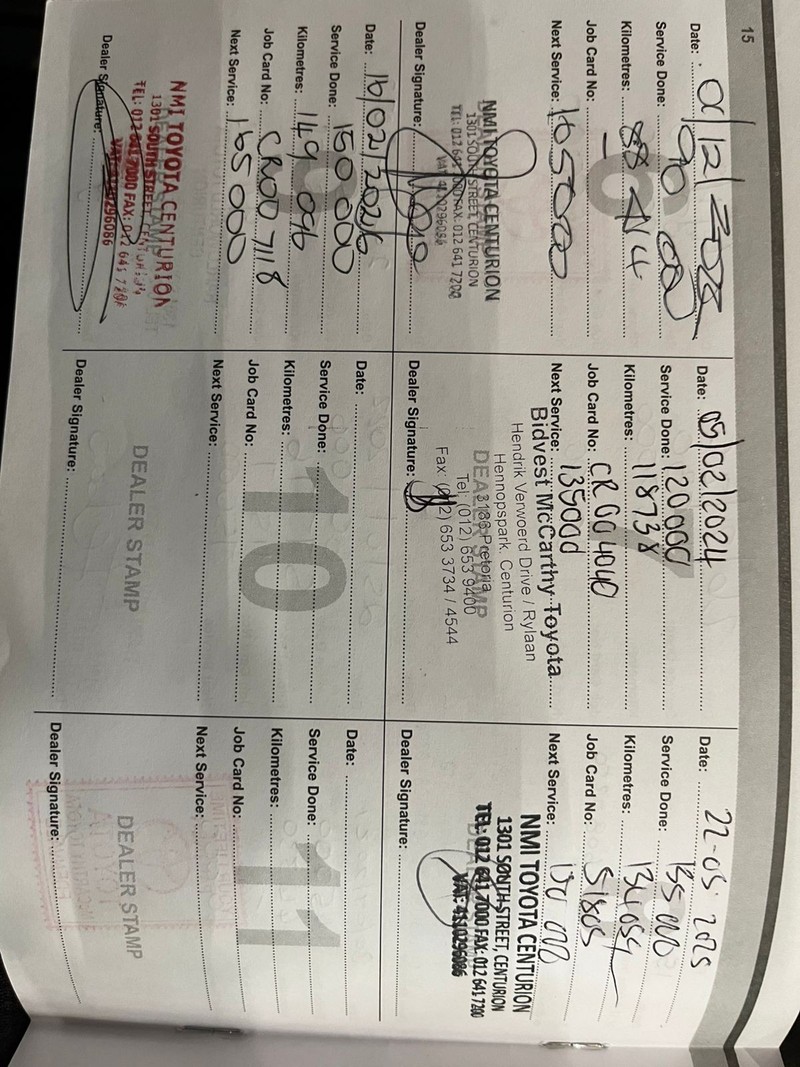 15
Date: 
Service Done: 90 000
Kilometres: 88 414
Job Card No: –
Next Service: 105000
NMI TOYOTA CENTURION
1301 SOUTH STREET, CENTURION
TEL: 012 641 7000 FAX: 012 641 7200
VAT: 4110296086
Dealer Signature:
Date: 05/02/2024
Service Done: 120 000
Kilometres: 118738
Job Card No: CR004040
Next Service: 135000
Bidvest McCarthy Toyota
Hendrik Verwoerd Drive / Rylaan
Hennopspark, Centurion
Pretoria
Tel: (012) 653 9400
Fax: (012) 653 3734 / 4544
DEALER STAMP
Dealer Signature:
Date: 22-05-2025
Service Done: 135 000
Kilometres: 134054
Job Card No: 51805
Next Service: 150 000
NMI TOYOTA CENTURION
1301 SOUTH STREET, CENTURION
TEL: 012 641 7000 FAX: 012 641 7200
VAT: 4110296086
Dealer Signature:
Date: 16/02/2026
Service Done: 150 000
Kilometres: 149 096
Job Card No: CR007118
Next Service: 165 000
NMI TOYOTA CENTURION
1301 SOUTH STREET, CENTURION
TEL: 012 641 7000 FAX: 012 641 7200
VAT: 4110296086
Dealer Signature:
10
Date:
Service Done:
Kilometres:
Job Card No:
Next Service:
DEALER STAMP
Dealer Signature:
11
Date:
Service Done:
Kilometres:
Job Card No:
Next Service:
DEALER STAMP
Dealer Signature: